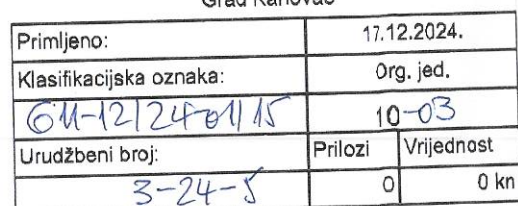 Grad Karlovac
Primljeno: 17.12.2024.
Klasifikacijska oznaka: Org. jed.
611-12/24-01/15 10-03
Urudžbeni broj: Prilozi Vrijednost
3-24-5 0 0 kn